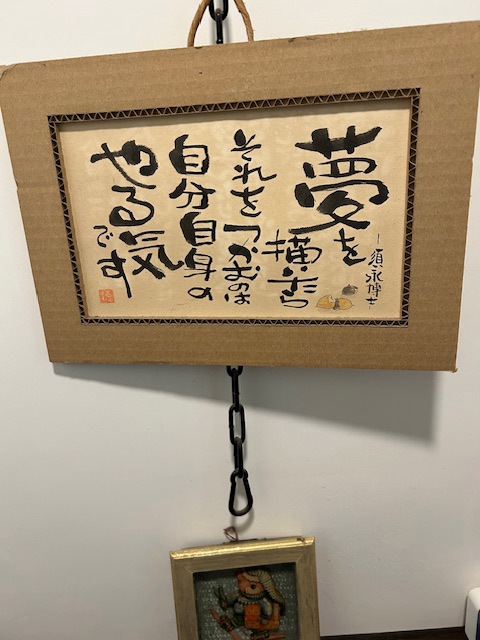 夢を
描いたら
それをつかむのは
自分自身の
やる気
です
－須永博士－